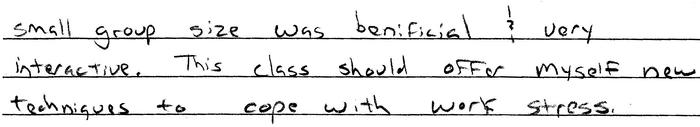 small group size was benificial & very
interactive. This class should offer myself new
techniques to cope with work stress.